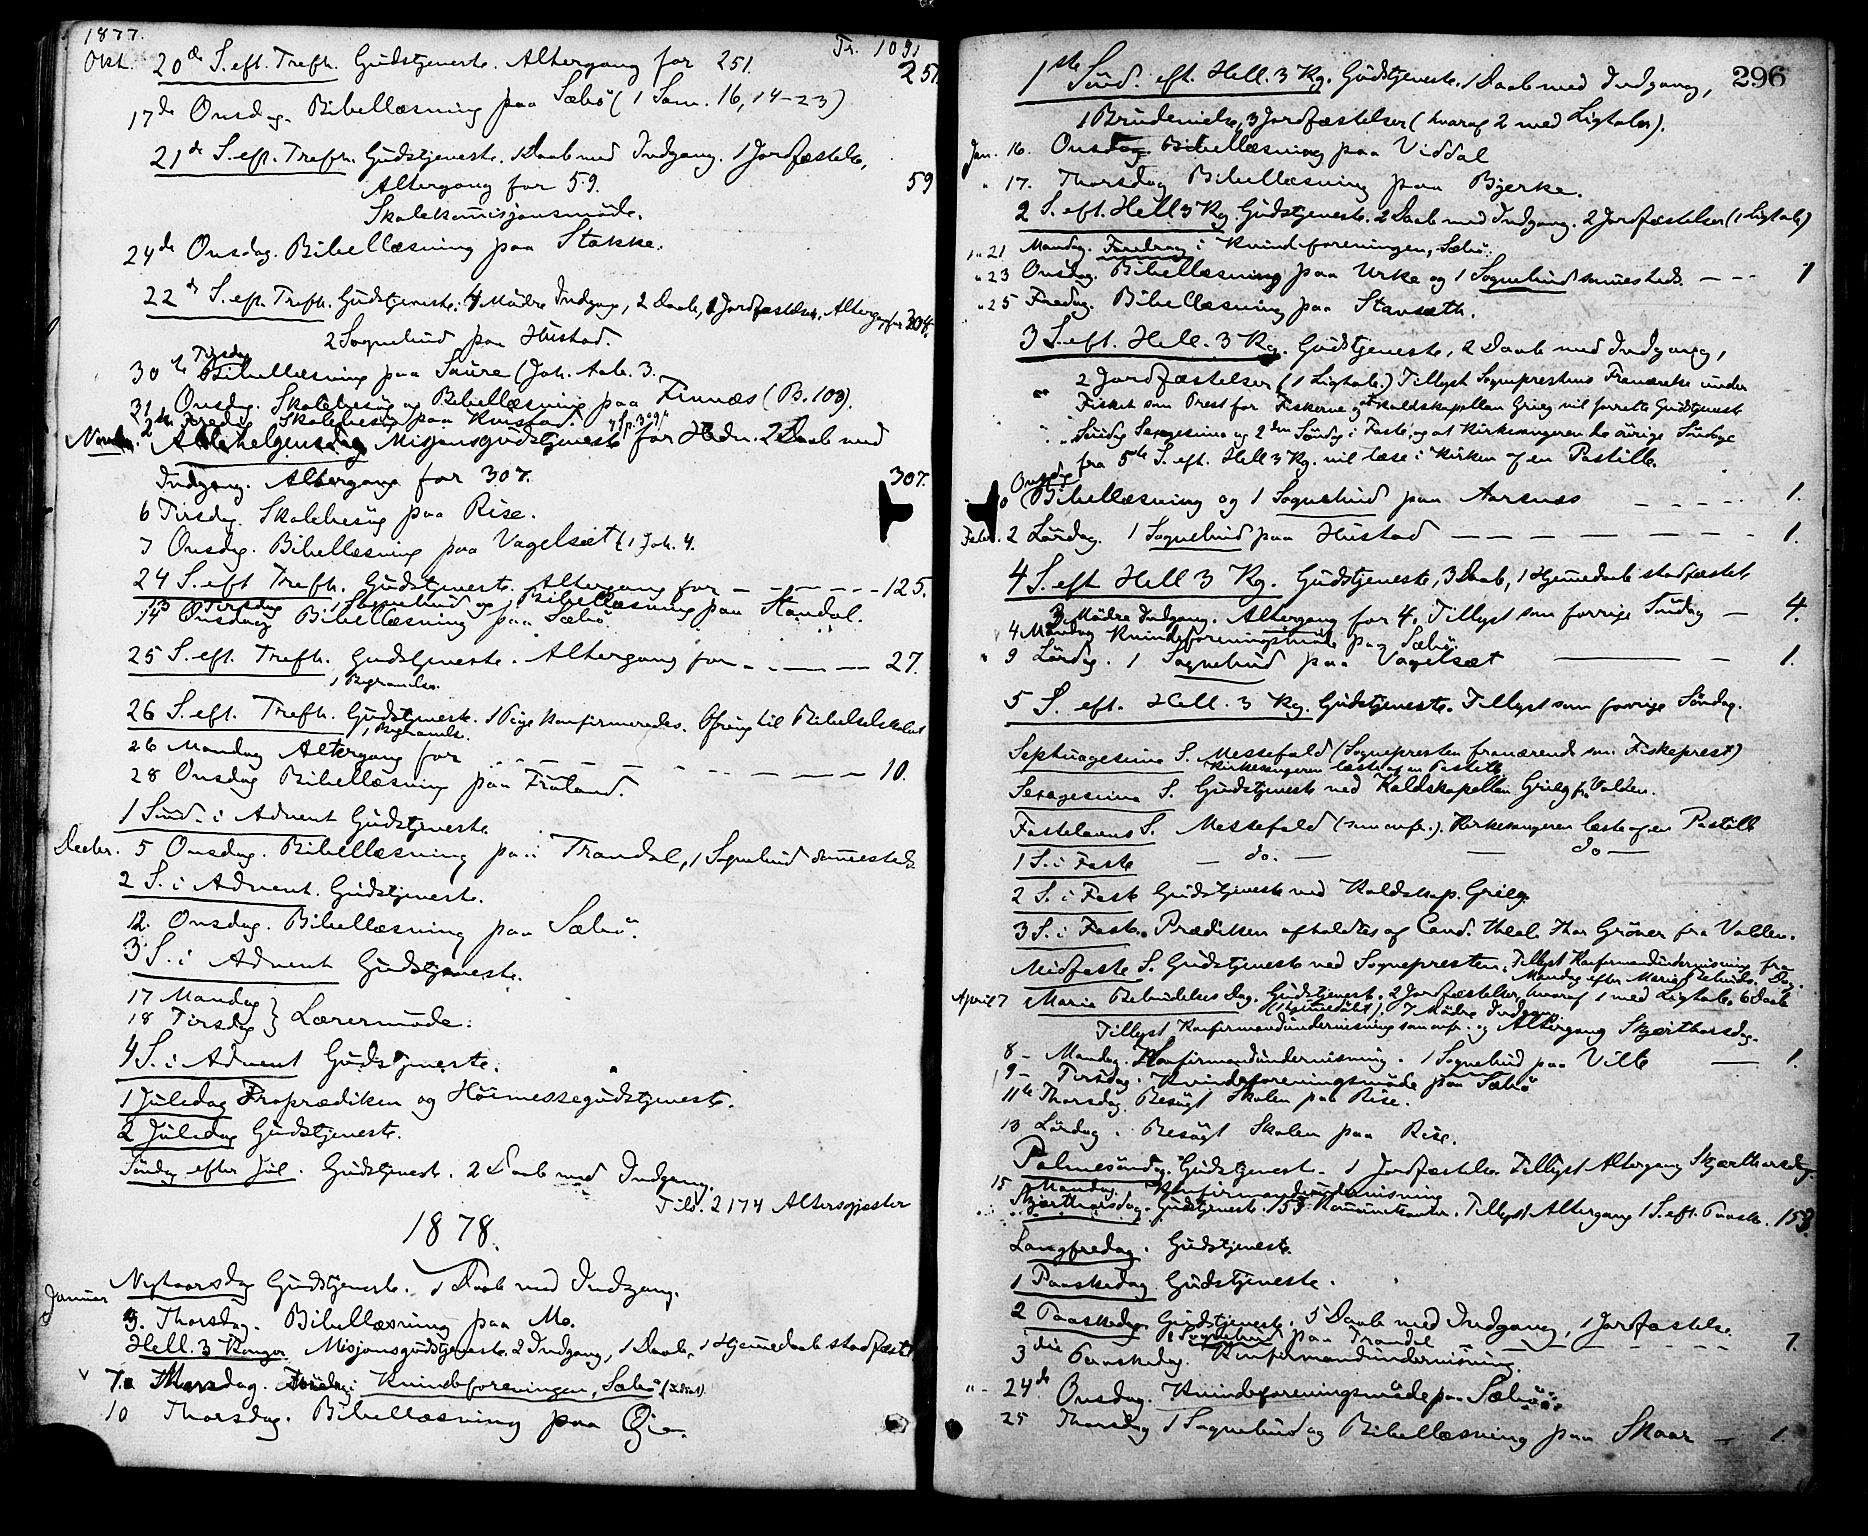 1877.
Tr. 1091
Okt. 20de S. eft. Trefh. Gudstjeneste. Altergang for 251. 251
17de Onsdag. Bibellæsning paa Sæbö (1 Sam. 16, 14-23)
21de S. eft. Trefh. Gudstjeneste. 1 Daab med Indgang. 1 Jordfæstelse,
Altergang for 59. 59
Skolekomisjonsmöde.
24de Onsdag. Bibellæsning paa Stokke.
22de S. eft. Trefh. Gudstjeneste. 4 Mödre Indgang, 2 Daab, Jordfæstelser, Altergang for 304.
2 Sognebud paa Hustad.
30te Tirsdag Bibellæsning paa Saure (Joh. Aab. 3.
31 Onsdag. Skolebesög og Bibellæsning paa Finnæs (B. 103).
2den Fredag Skolebesög paa Hustad.
Novbr. Allehelgensdag Misjonsgudstjeneste for Hedn. 2 Daab med
Indgang. Altergang for 307. 307.
6 Tirsdag. Skolebesög paa Rise.
7 Onsdag. Bibellæsning paa Vagelsæt (1 Joh. 4.
24 S. eft Trefh. Gudstjeneste. Altergang for - - - - 125.
13 Tirsdag 1 Sognebud og Bibellæsning paa Standal.
14 Onsdag Bibellæsning paa Sæbö
25 S. eft. Trefh. Gudstjeneste. Altergang for - - - - 27.
1 Begravelse.
26 S. eft. Trefh. Gudstjeneste. 1 Pige konfirmeredes. Ofring til Bibelselskabet
1 Begravelse.
26 Mandag Altergang for - - - - 10.
28 Onsdag Bibellæsning paa Frøland.
1 Sönd. i Advent Gudstjeneste
Decbr. 5 Onsdag. Bibellæsning paa Trandal, 1 Sognebud sammesteds
2 S. i Advent. Gudstjeneste.
12. Onsdag. Bibellæsning paa Sæbö.
3 S. i Advent Gudstjeneste.
17 Mandag
18 Tirsdag } Lærermöde.
4 S. i Advent Gudstjeneste.
1 Juledag Froprædiken og Höimessegudstjeneste.
2 Juledag Gudstjeneste.
Söndag efter Jul. Gudstjeneste. 2 Daab med Indgang.
Tils. 2174 Altersgjester
1878.
Nytaarsdag Gudstjeneste. 1 Daab med Indgang.
Januar 3. Thorsdag. Bibellæsning paa Mo.
Hell. 3 Konger Misjonsgudstjeneste. 2 Indgang, 1 Daab, 1 Hjemmedaab stadfæst.
7. Mandag. Foredrag i Kvindeforeningen, Sæbö
10 Thorsdag. Bibellæsning paa Øie.
296
1ste Sönd. eft. Hell. 3 Kg. Gudstjeneste. 1 Daab med Indgang,
1 Brudevielse, 3 Jordfæstelser (hvoraf 2 med Ligtaler).
Jan. 16. Onsdag. Bibellæsning paa Viddal
" 17. Thorsdag Bibellæsning paa Bjerke.
2 S. eft. Hell 3 Kg. Gudstjeneste. 2 Daab med Indgang. 2 Jordfæstelser (1 Ligtale)
" 21 Mandag. Foredrag i Kvindeforeningen, Sæbö.
" 23 Onsdag. Bibellæsning paa Urke og 1 Sognebud sammesteds. - - - 1
" 25 Fredag. Bibellæsning paa Stavsæth.
3 S. eft. Hell. 3 Kg. Gudstjeneste, 2 Daab med Indgang,
2 Jordfæstelser (1 Ligtale.) Tillyst Sogneprestens Fraværelse under
Fisket som Prest for Fiskerne og at Kaldskapellan Grieg vil forrette Gudstjeneste
Söndag Sexagesima og 2den Söndag i Faste, og at Kirkesangeren de övrige Söndage
fra 5te S. eft. Hell 3 Kg. vil læse i Kirken af en Postille.
Onsdag Bibellæsning og 1 Sognebud paa Aarsnes - - - 1.
Febr. 2 Lördag. 1 Sognebud paa Hustad - - - - 1.
4 S. eft Hell 3 Kg. Gudstjeneste, 3 Daab, 1 Hjemmedaab stadfæstet,
3 Mödre Indgang. Altergang for 4. Tillyst som forrige Söndag - 4.
4 Mandag Kvindeforeningsmöde paa Sæbö.
9 Lördag. 1 Sognebud paa Vagelsæt - 1.
5 S. eft. Hell. 3 Kg. Gudstjeneste. Tillyst som forrige Söndag.
Septuagesima S. Messefald (Sognepresten fraværende som Fiskeprest)
Kirkesangeren læste af en Postille
Sexagesima S. Gudstjeneste ved Kaldskapellan Grieg fra Volden.
Fastelavns S. Messefald (som ovenfr.). Kirkesangeren læste af en Postille
1 S. i Faste - do. - - do -
2 S. i Faste Gudstjeneste ved Kaldskap. Grieg.
3 S. i Faste. Prædiken afholdtes af Cand. theol. Thor Gröner fra Volden.
Midfaste S. Gudstjeneste ved Sognepresten. Tillyst Konfirmandundervisning fra
Mandag efter Mariæ Bebud. Dag.
April 7 Mariæ Bebudelses Dag. Gudstjeneste. 2 Jordfæstelser, hvoraf 1 med Ligtale. 6 Daab
(1 Hjemmedöbt). 7 Mödre Indgang.
Tillyst Konfirmandundervisning som ovfr. og Altergang Skjærthorsdag.
8 - Mandag. Konfirmandundervisning. 1 Sognebud paa Vilte - 1.
9 - Tirsdag. Kvindeforeningsmöde paa Sæbö
11te Thorsdag. Besögt Skolen paa Rise.
13 Lördag. Besögt Skolen paa Rise.
Palmesöndag. Gudstjeneste. 1 Jordfæstelse. Tillyst Altergang Skjærthorsdag.
15 Mandag. Konfirmandundervisning
Skjærthorsdag. Gudstjeneste. 153 Kommunikanter. Tillyst Altergang 1 S. eft. Paaske. 153.
Langfredag. Gudstjeneste
1 Paaskedag Gudstjeneste.
2 Paaskedag Gudstjeneste. 5 Daab med Indgang, 1 Jordfæstelse
1 Sognebud paa Trandal - - - - 1.
3die Paaskedag. Konfirmandundervisning.
24de Onsdag. Kvindeforeningsmöde paa Sæbö.
25 Thorsdag 1 Sognebud og Bibellæsning paa Skaar - 1.